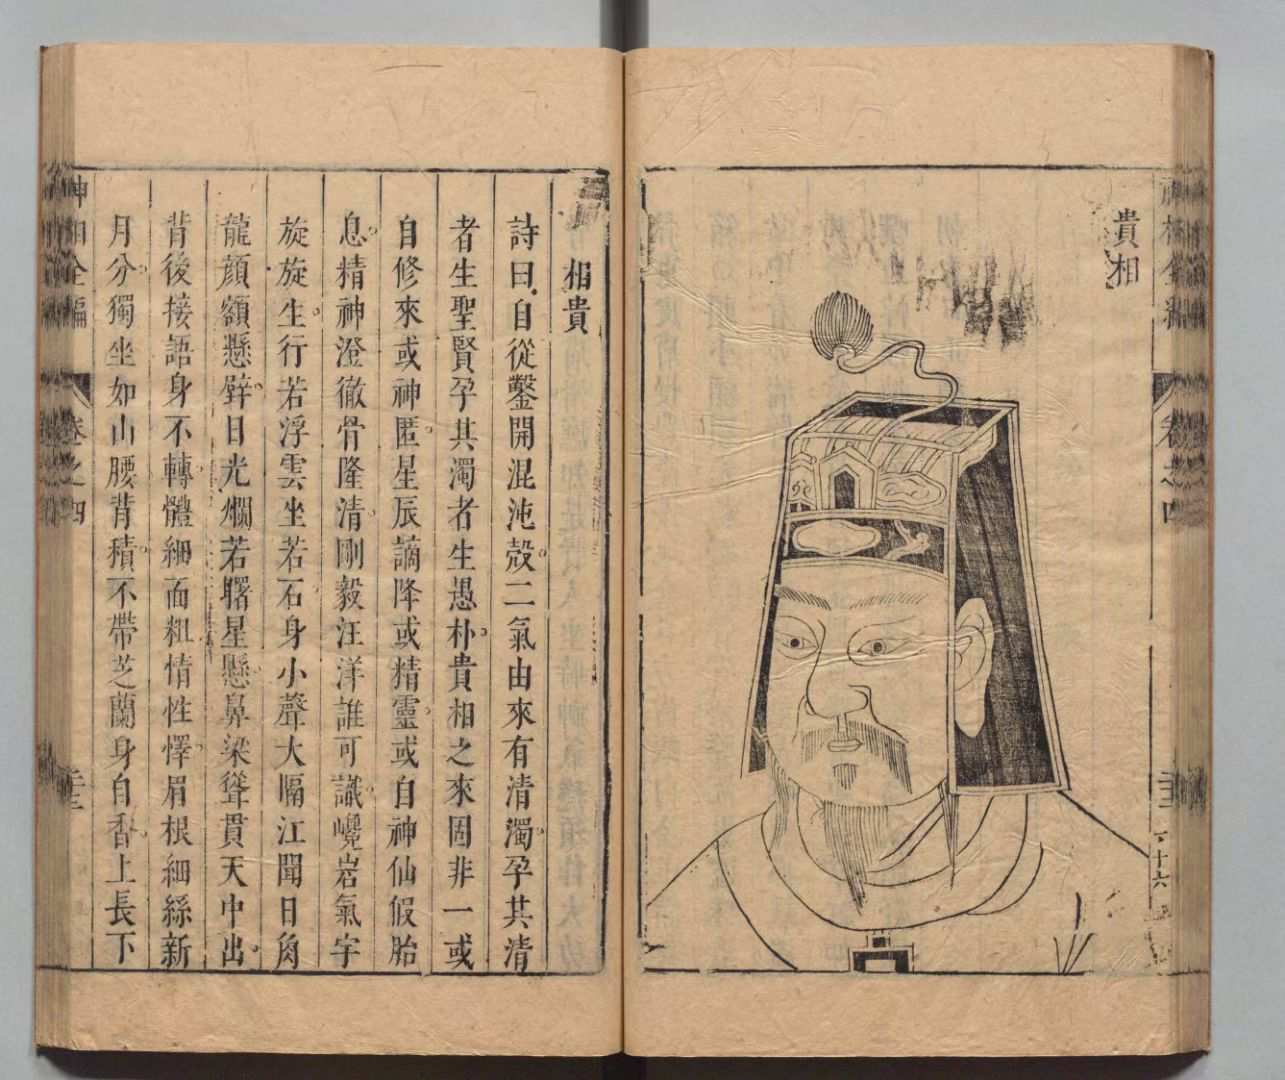 貴相
卷之四
相貴
詩曰自從鑿開混沌殼二氣由來有清濁孕其清
者生聖賢孕其濁者生愚朴貴相之來固非一或
自修來或神匿星辰謫降或精靈或自神仙假胎
息精神澄徹骨隆清剛毅汪洋誰可識巉岩氣宇
旋旋生行若浮雲坐若石身小聲大隔江聞日角
龍顏額懸壁日光爛若曙星懸鼻梁聳貫天中出
背後接語身不轉體細面粗情性懌眉根細絲新
月分獨坐如山腰背積不帶芝蘭身自香上長下
神相全編
卷之四